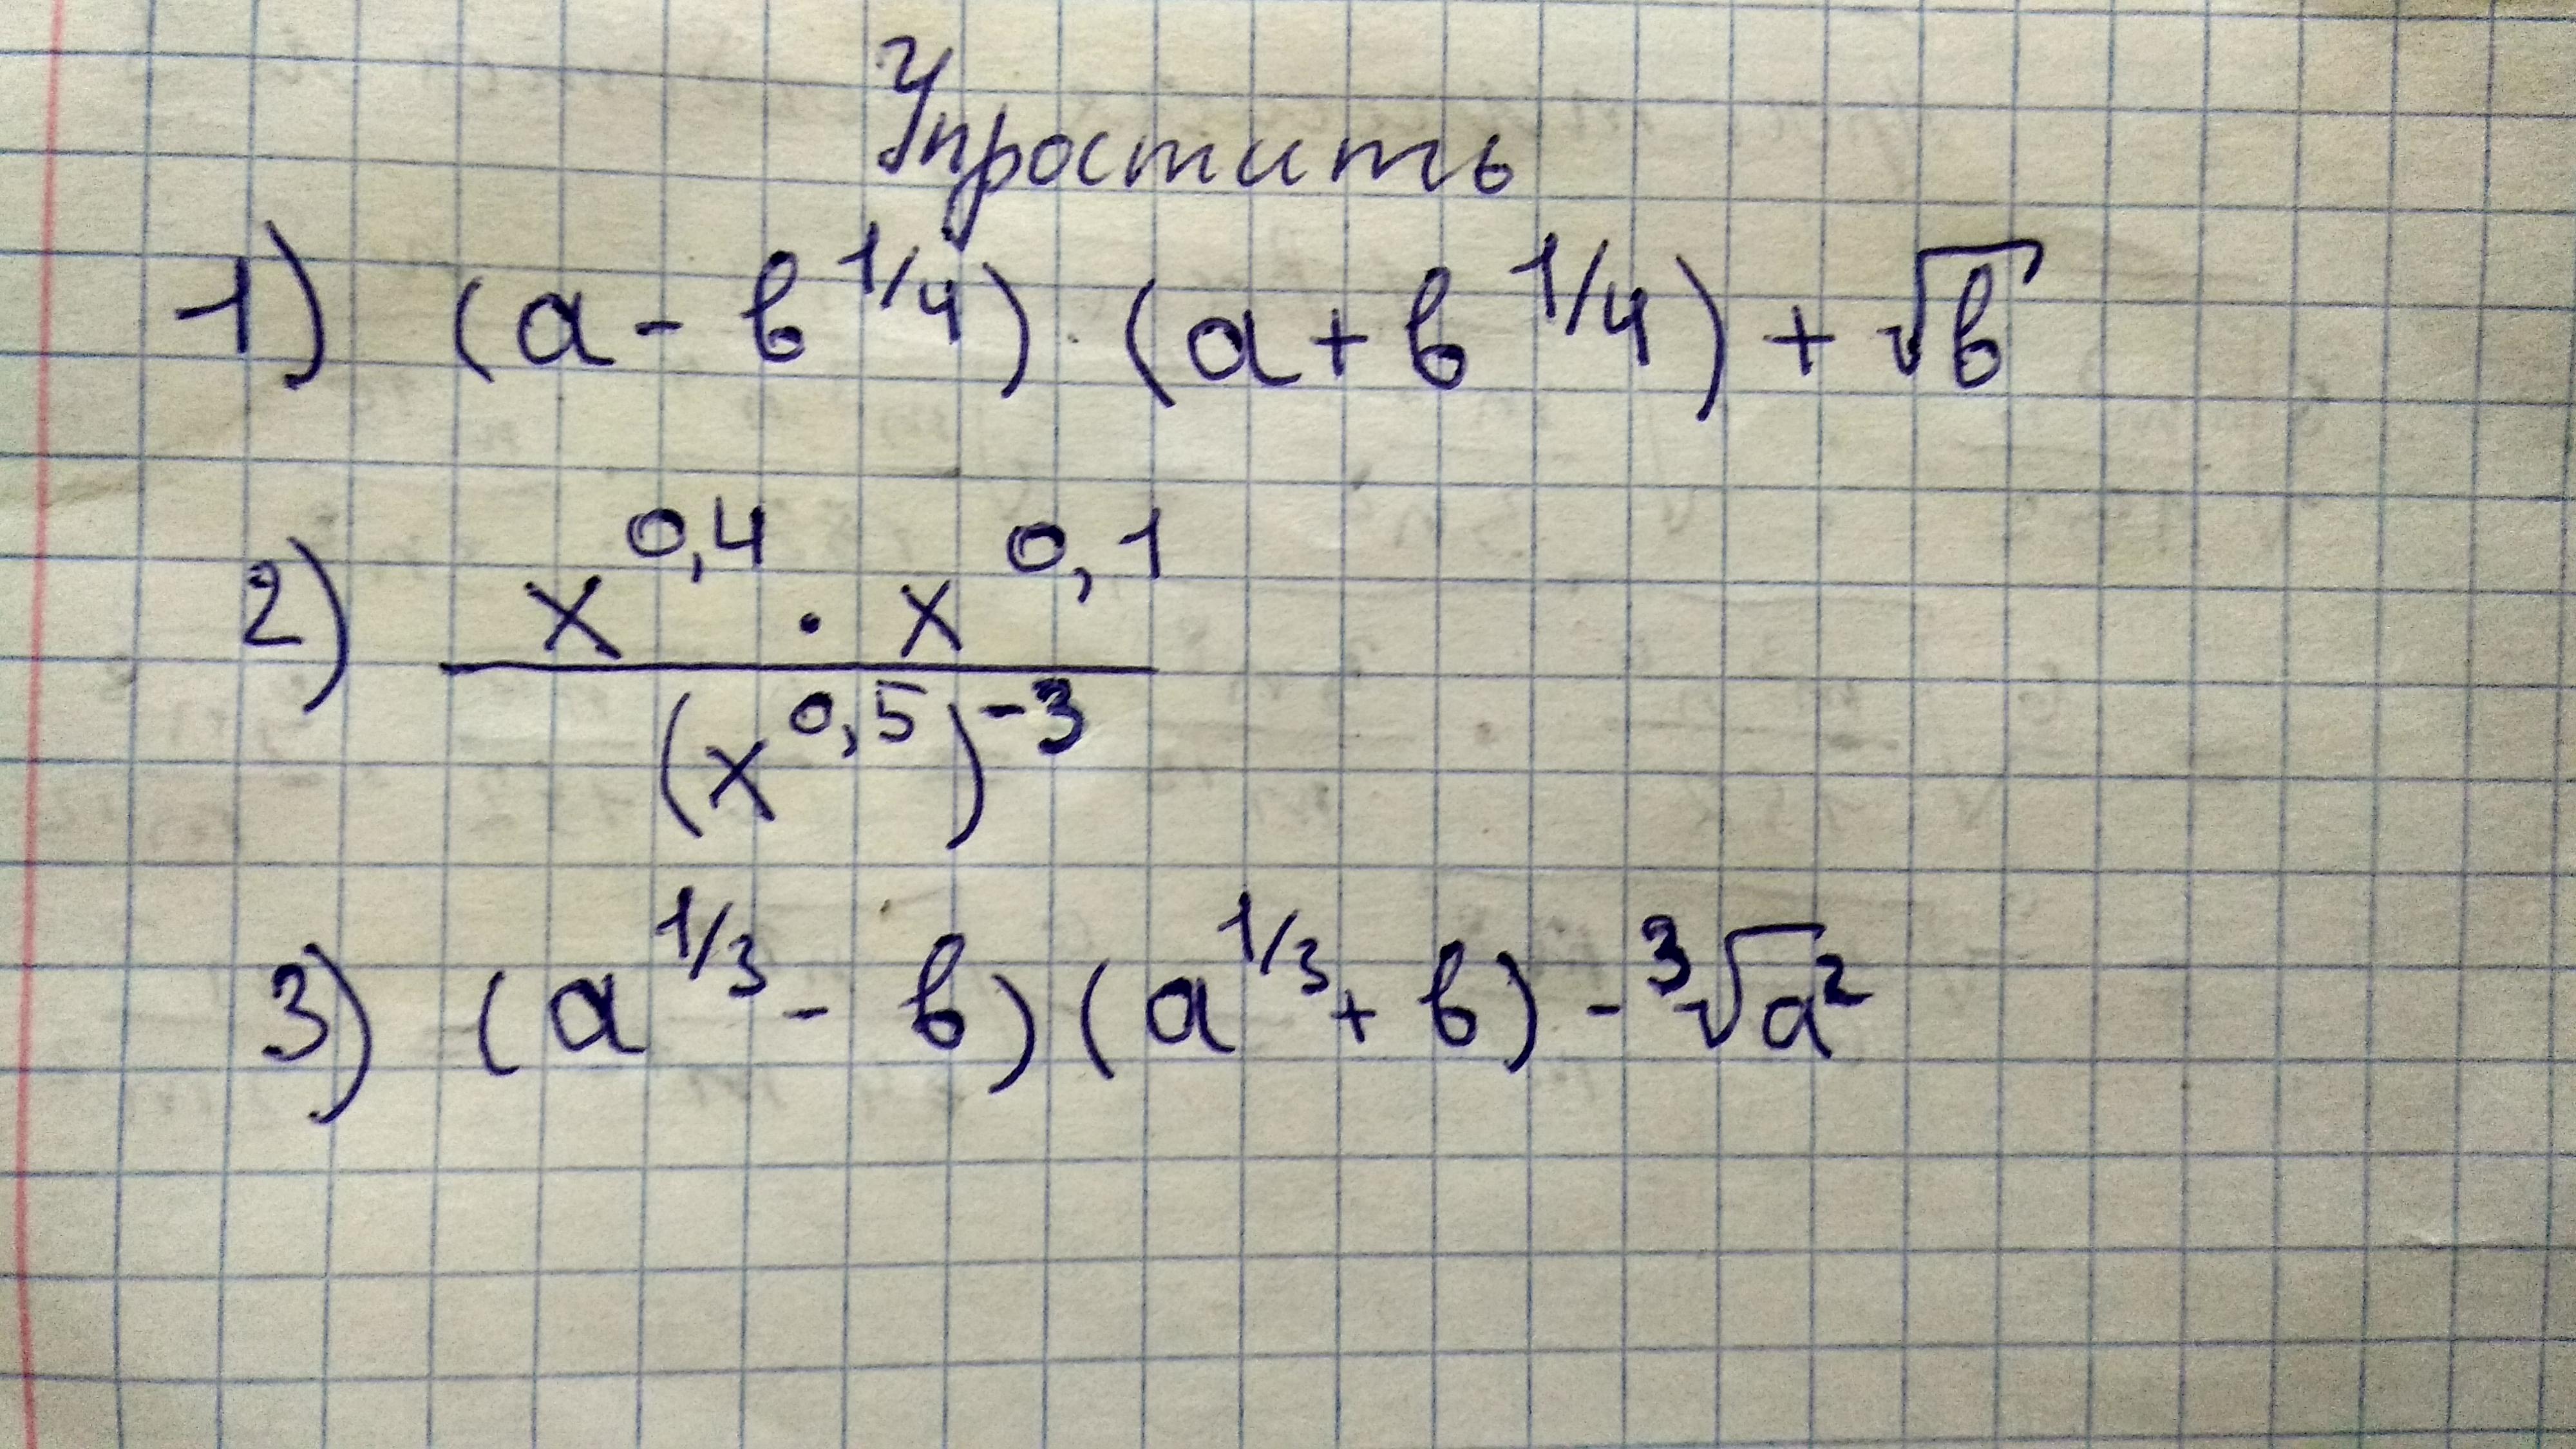 Упростить
1) (a - b^{1/4}) · (a + b^{1/4}) + √b
2) \frac{x^{0,4} · x^{0,1}}{(x^{0,5})^{-3}}
3) (a^{1/3} - b)(a^{1/3} + b) - ∛a²